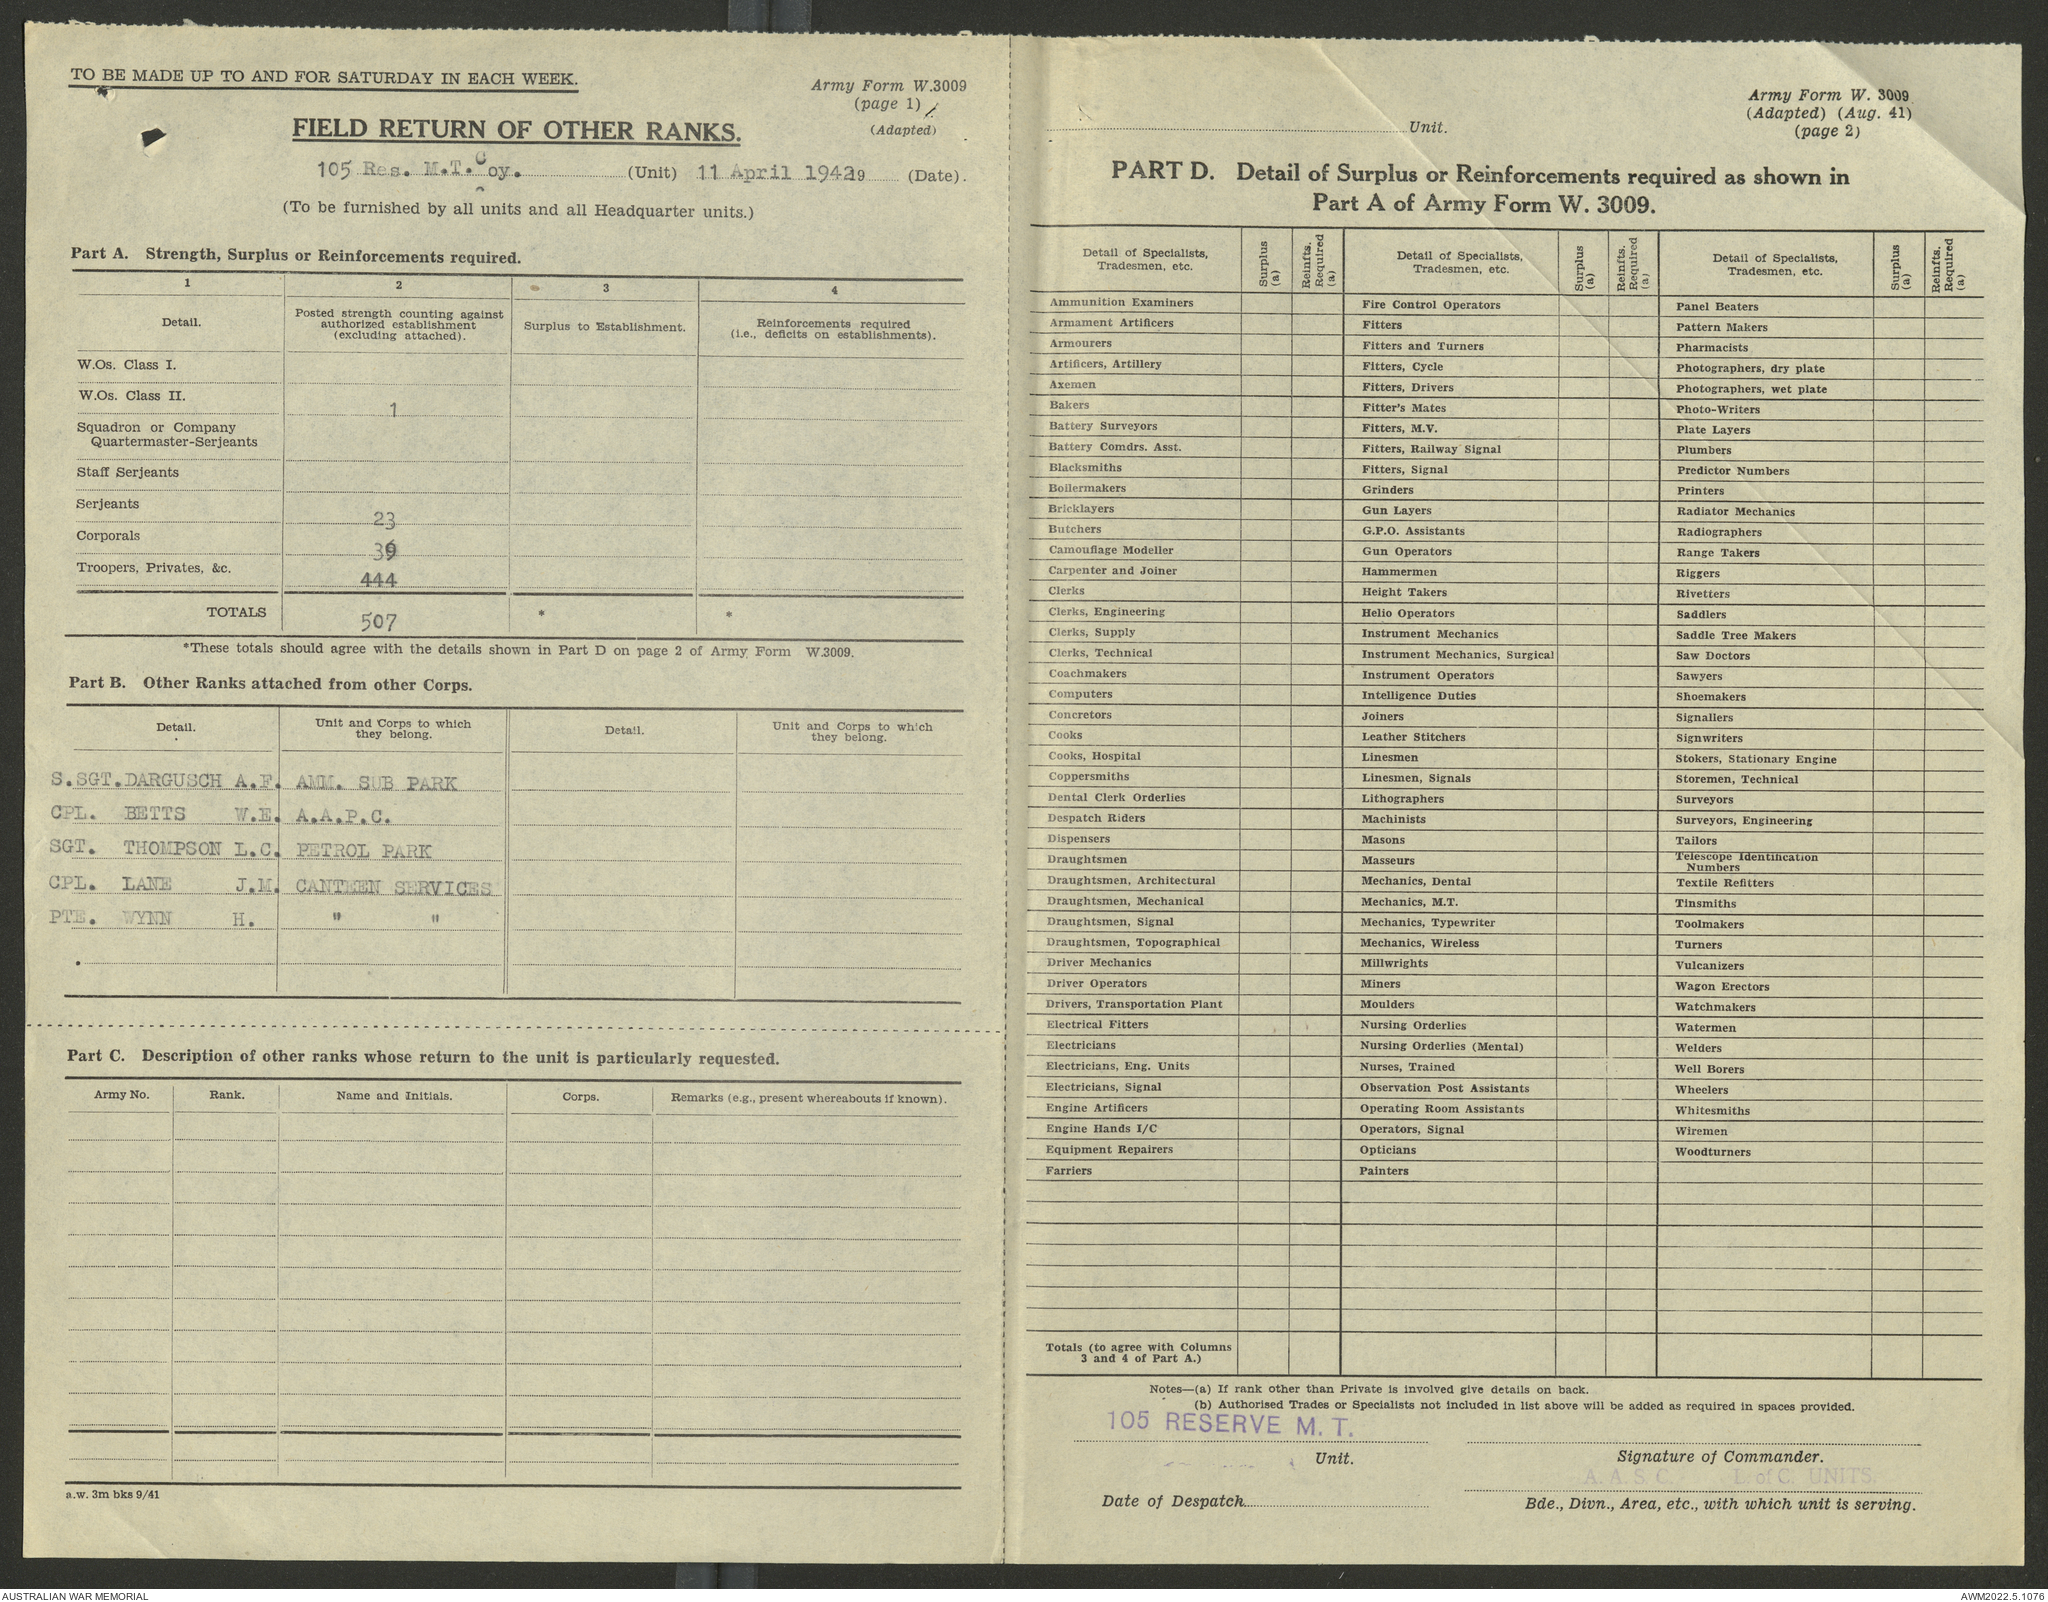 TO BE MADE UP TO AND FOR SATURDAY IN EACH WEEK.
Army Form W.3009
(page 1)
(Adapted)
FIELD RETURN OF OTHER RANKS.
105 Res. M.T. Coy. (Unit) 11 April 194219 (Date).
(To be furnished by all units and all Headquarter units.)
Part A. Strength, Surplus or Reinforcements required.
1 2 3 4
Detail. Posted strength counting against authorized establishment (excluding attached). Surplus to Establishment. Reinforcements required (i.e., deficits on establishments).
W.Os. Class I.
W.Os. Class II. 1
Squadron or Company
Quartermaster-Serjeants
Staff Serjeants
Serjeants 23
Corporals 39
Troopers, Privates, &c. 444
TOTALS 507 * *
*These totals should agree with the details shown in Part D on page 2 of Army Form W.3009.
Part B. Other Ranks attached from other Corps.
Detail. Unit and Corps to which they belong. Detail. Unit and Corps to which they belong.
S.SGT. DARGUSCH A.F. AMM. SUB PARK
CPL. BETTS W.E. A.A.P.C.
SGT. THOMPSON L.C. PETROL PARK
CPL. LANE J.M. CANTEEN SERVICES
PTE. WYNN H. " "
Part C. Description of other ranks whose return to the unit is particularly requested.
Army No. Rank. Name and Initials. Corps. Remarks (e.g., present whereabouts if known).
a.w. 3m bks 9/41
Army Form W. 3009
(Adapted) (Aug. 41)
(page 2)
Unit.
PART D. Detail of Surplus or Reinforcements required as shown in
Part A of Army Form W. 3009.
Detail of Specialists, Tradesmen, etc. Surplus (a) Reinfts. Required (a) Detail of Specialists, Tradesmen, etc. Surplus (a) Reinfts. Required (a) Detail of Specialists, Tradesmen, etc. Surplus (a) Reinfts. Required (a)
Ammunition Examiners Fire Control Operators Panel Beaters
Armament Artificers Fitters Pattern Makers
Armourers Fitters and Turners Pharmacists
Artificers, Artillery Fitters, Cycle Photographers, dry plate
Axemen Fitters, Drivers Photographers, wet plate
Bakers Fitter's Mates Photo-Writers
Battery Surveyors Fitters, M.V. Plate Layers
Battery Comdrs. Asst. Fitters, Railway Signal Plumbers
Blacksmiths Fitters, Signal Predictor Numbers
Boilermakers Grinders Printers
Bricklayers Gun Layers Radiator Mechanics
Butchers G.P.O. Assistants Radiographers
Camouflage Modeller Gun Operators Range Takers
Carpenter and Joiner Hammermen Riggers
Clerks Height Takers Rivetters
Clerks, Engineering Helio Operators Saddlers
Clerks, Supply Instrument Mechanics Saddle Tree Makers
Clerks, Technical Instrument Mechanics, Surgical Saw Doctors
Coachmakers Instrument Operators Sawyers
Computers Intelligence Duties Shoemakers
Concretors Joiners Signallers
Cooks Leather Stitchers Signwriters
Cooks, Hospital Linesmen Stokers, Stationary Engine
Coppersmiths Linesmen, Signals Storemen, Technical
Dental Clerk Orderlies Lithographers Surveyors
Despatch Riders Machinists Surveyors, Engineering
Dispensers Masons Tailors
Draughtsmen Masseurs Telescope Identification Numbers
Draughtsmen, Architectural Mechanics, Dental Textile Refitters
Draughtsmen, Mechanical Mechanics, M.T. Tinsmiths
Draughtsmen, Signal Mechanics, Typewriter Toolmakers
Draughtsmen, Topographical Mechanics, Wireless Turners
Driver Mechanics Millwrights Vulcanizers
Driver Operators Miners Wagon Erectors
Drivers, Transportation Plant Moulders Watchmakers
Electrical Fitters Nursing Orderlies Watermen
Electricians Nursing Orderlies (Mental) Welders
Electricians, Eng. Units Nurses, Trained Well Borers
Electricians, Signal Observation Post Assistants Wheelers
Engine Artificers Operating Room Assistants Whitesmiths
Engine Hands I/C Operators, Signal Wiremen
Equipment Repairers Opticians Woodturners
Farriers Painters
Totals (to agree with Columns
3 and 4 of Part A.)
Notes—(a) If rank other than Private is involved give details on back.
(b) Authorised Trades or Specialists not included in list above will be added as required in spaces provided.
105 RESERVE M. T.
Unit. Signature of Commander.
A. A. S. C. L. of C. UNITS.
Date of Despatch Bde., Divn., Area, etc., with which unit is serving.
AUSTRALIAN WAR MEMORIAL AWM2022.5.1076